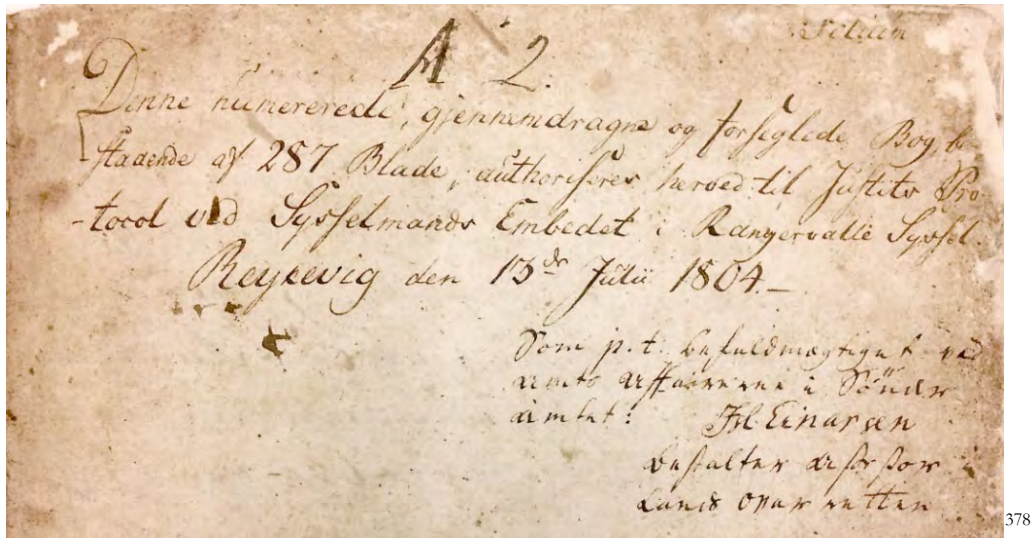 A 2.
Denne numererede, gjennemdragne og forseglede Bog, be-
staaende af 287 Blade, authoriseres herved til Justits Pro
-tocol ved Sysselmands Embedet i Rangervalle Syssel.
Reykevig den 13de Julii 1804.—
Som p.t. befuldmægtiget ved
amts affairerne i Sönder
amtet:
Isl Einarsen
bestalter assessor i
Lands over retten
378